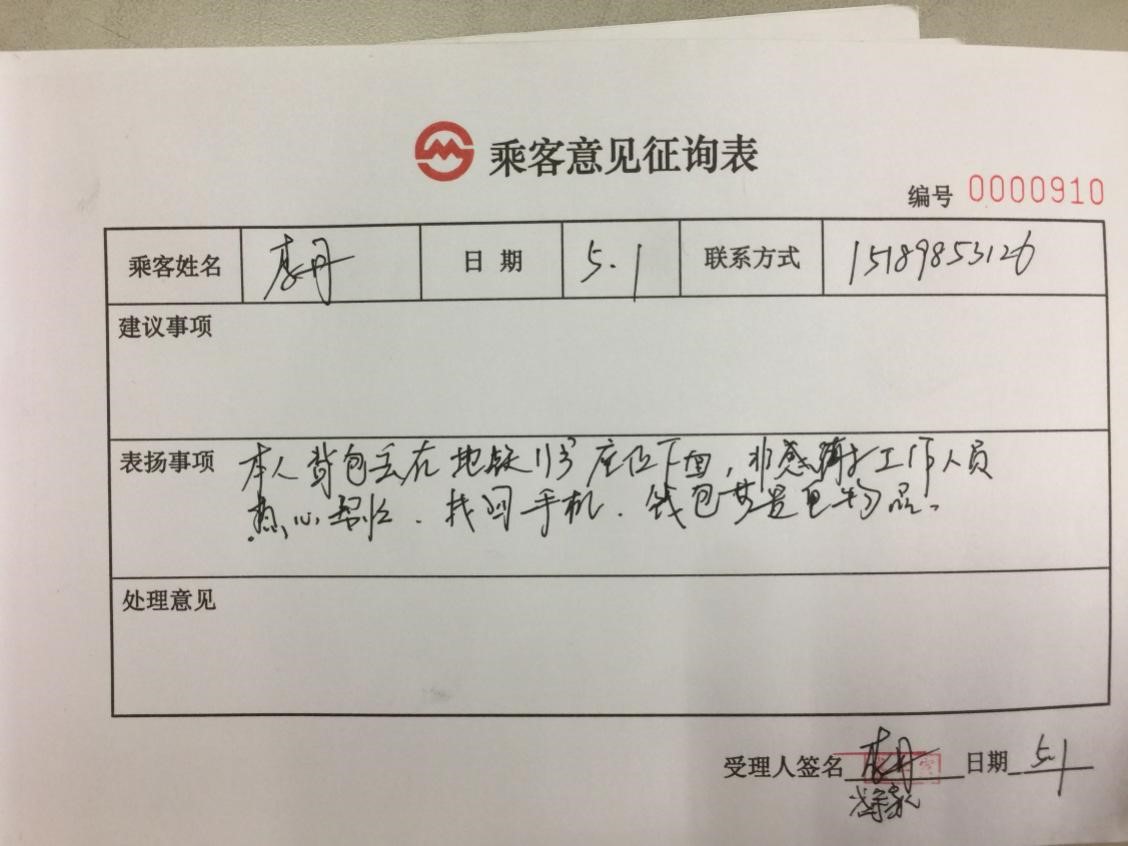 乘客意见征询表
编号 0000910
乘客姓名 李丹 日期 5.1 联系方式 15189853126
建议事项
表扬事项 本人背包丢在地铁11号座位下面，非感谢工作人员
热心帮忙、找回手机、钱包贵重物品。
处理意见
受理人签名 李丹 日期 5.1